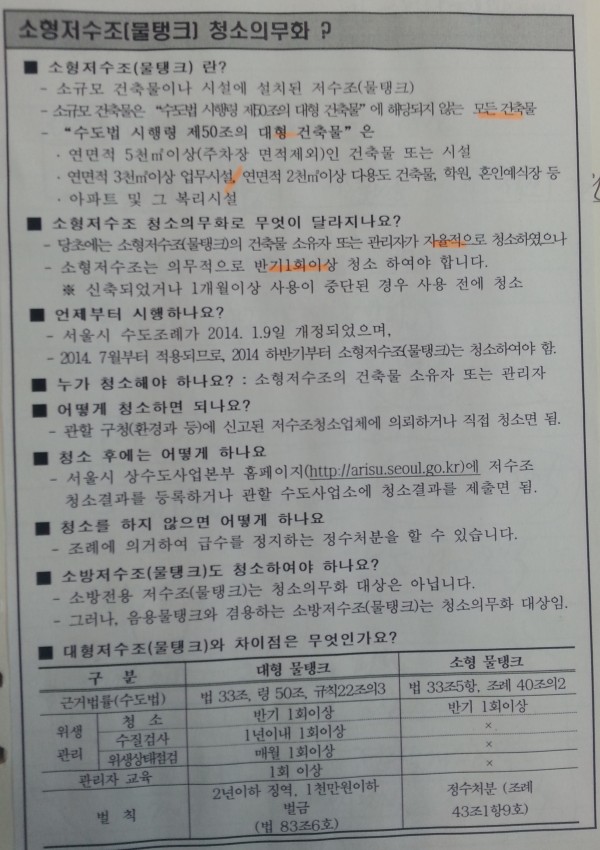 소형저수조(물탱크) 청소의무화 ?
■ 소형저수조(물탱크) 란?
- 소규모 건축물이나 시설에 설치된 저수조(물탱크)
- 소규모 건축물은 “수도법 시행령 제50조의 대형 건축물”에 해당되지 않는 모든 건축물
- “수도법 시행령 제50조의 대형 건축물”은
· 연면적 5천㎡이상(주차장 면적제외)인 건축물 또는 시설
· 연면적 3천㎡이상 업무시설, 연면적 2천㎡이상 다용도 건축물, 학원, 혼인예식장 등
· 아파트 및 그 복리시설
■ 소형저수조 청소의무화로 무엇이 달라지나요?
- 당초에는 소형저수조(물탱크)의 건축물 소유자 또는 관리자가 자율적으로 청소하였으나
- 소형저수조는 의무적으로 반기1회이상 청소 하여야 합니다.
※ 신축되었거나 1개월이상 사용이 중단된 경우 사용 전에 청소
■ 언제부터 시행하나요?
- 서울시 수도조례가 2014. 1.9일 개정되었으며,
- 2014. 7월부터 적용되므로, 2014 하반기부터 소형저수조(물탱크)는 청소하여야 함.
■ 누가 청소해야 하나요? : 소형저수조의 건축물 소유자 또는 관리자
■ 어떻게 청소하면 되나요?
- 관할 구청(환경과 등)에 신고된 저수조청소업체에 의뢰하거나 직접 청소면 됨.
■ 청소 후에는 어떻게 하나요
- 서울시 상수도사업본부 홈페이지(http://arisu.seoul.go.kr)에 저수조
청소결과를 등록하거나 관할 수도사업소에 청소결과를 제출면 됨.
■ 청소를 하지 않으면 어떻게 하나요
- 조례에 의거하여 급수를 정지하는 정수처분을 할 수 있습니다.
■ 소방저수조(물탱크)도 청소하여야 하나요?
- 소방전용 저수조(물탱크)는 청소의무화 대상은 아닙니다.
- 그러나, 음용물탱크와 겸용하는 소방저수조(물탱크)는 청소의무화 대상임.
■ 대형저수조(물탱크)와 차이점은 무엇인가요?
구 분 대형 물탱크 소형 물탱크
근거법률(수도법) 법 33조, 령 50조, 규칙22조의3 법 33조5항, 조례 40조의2
위생 관리 청 소 반기 1회이상 반기 1회이상
수질검사 1년이내 1회이상 ×
위생상태점검 매월 1회이상 ×
관리자 교육 1회 이상 ×
벌 칙 2년이하 징역, 1천만원이하 정수처분 (조례
벌금 43조1항9호)
(법 83조6호)